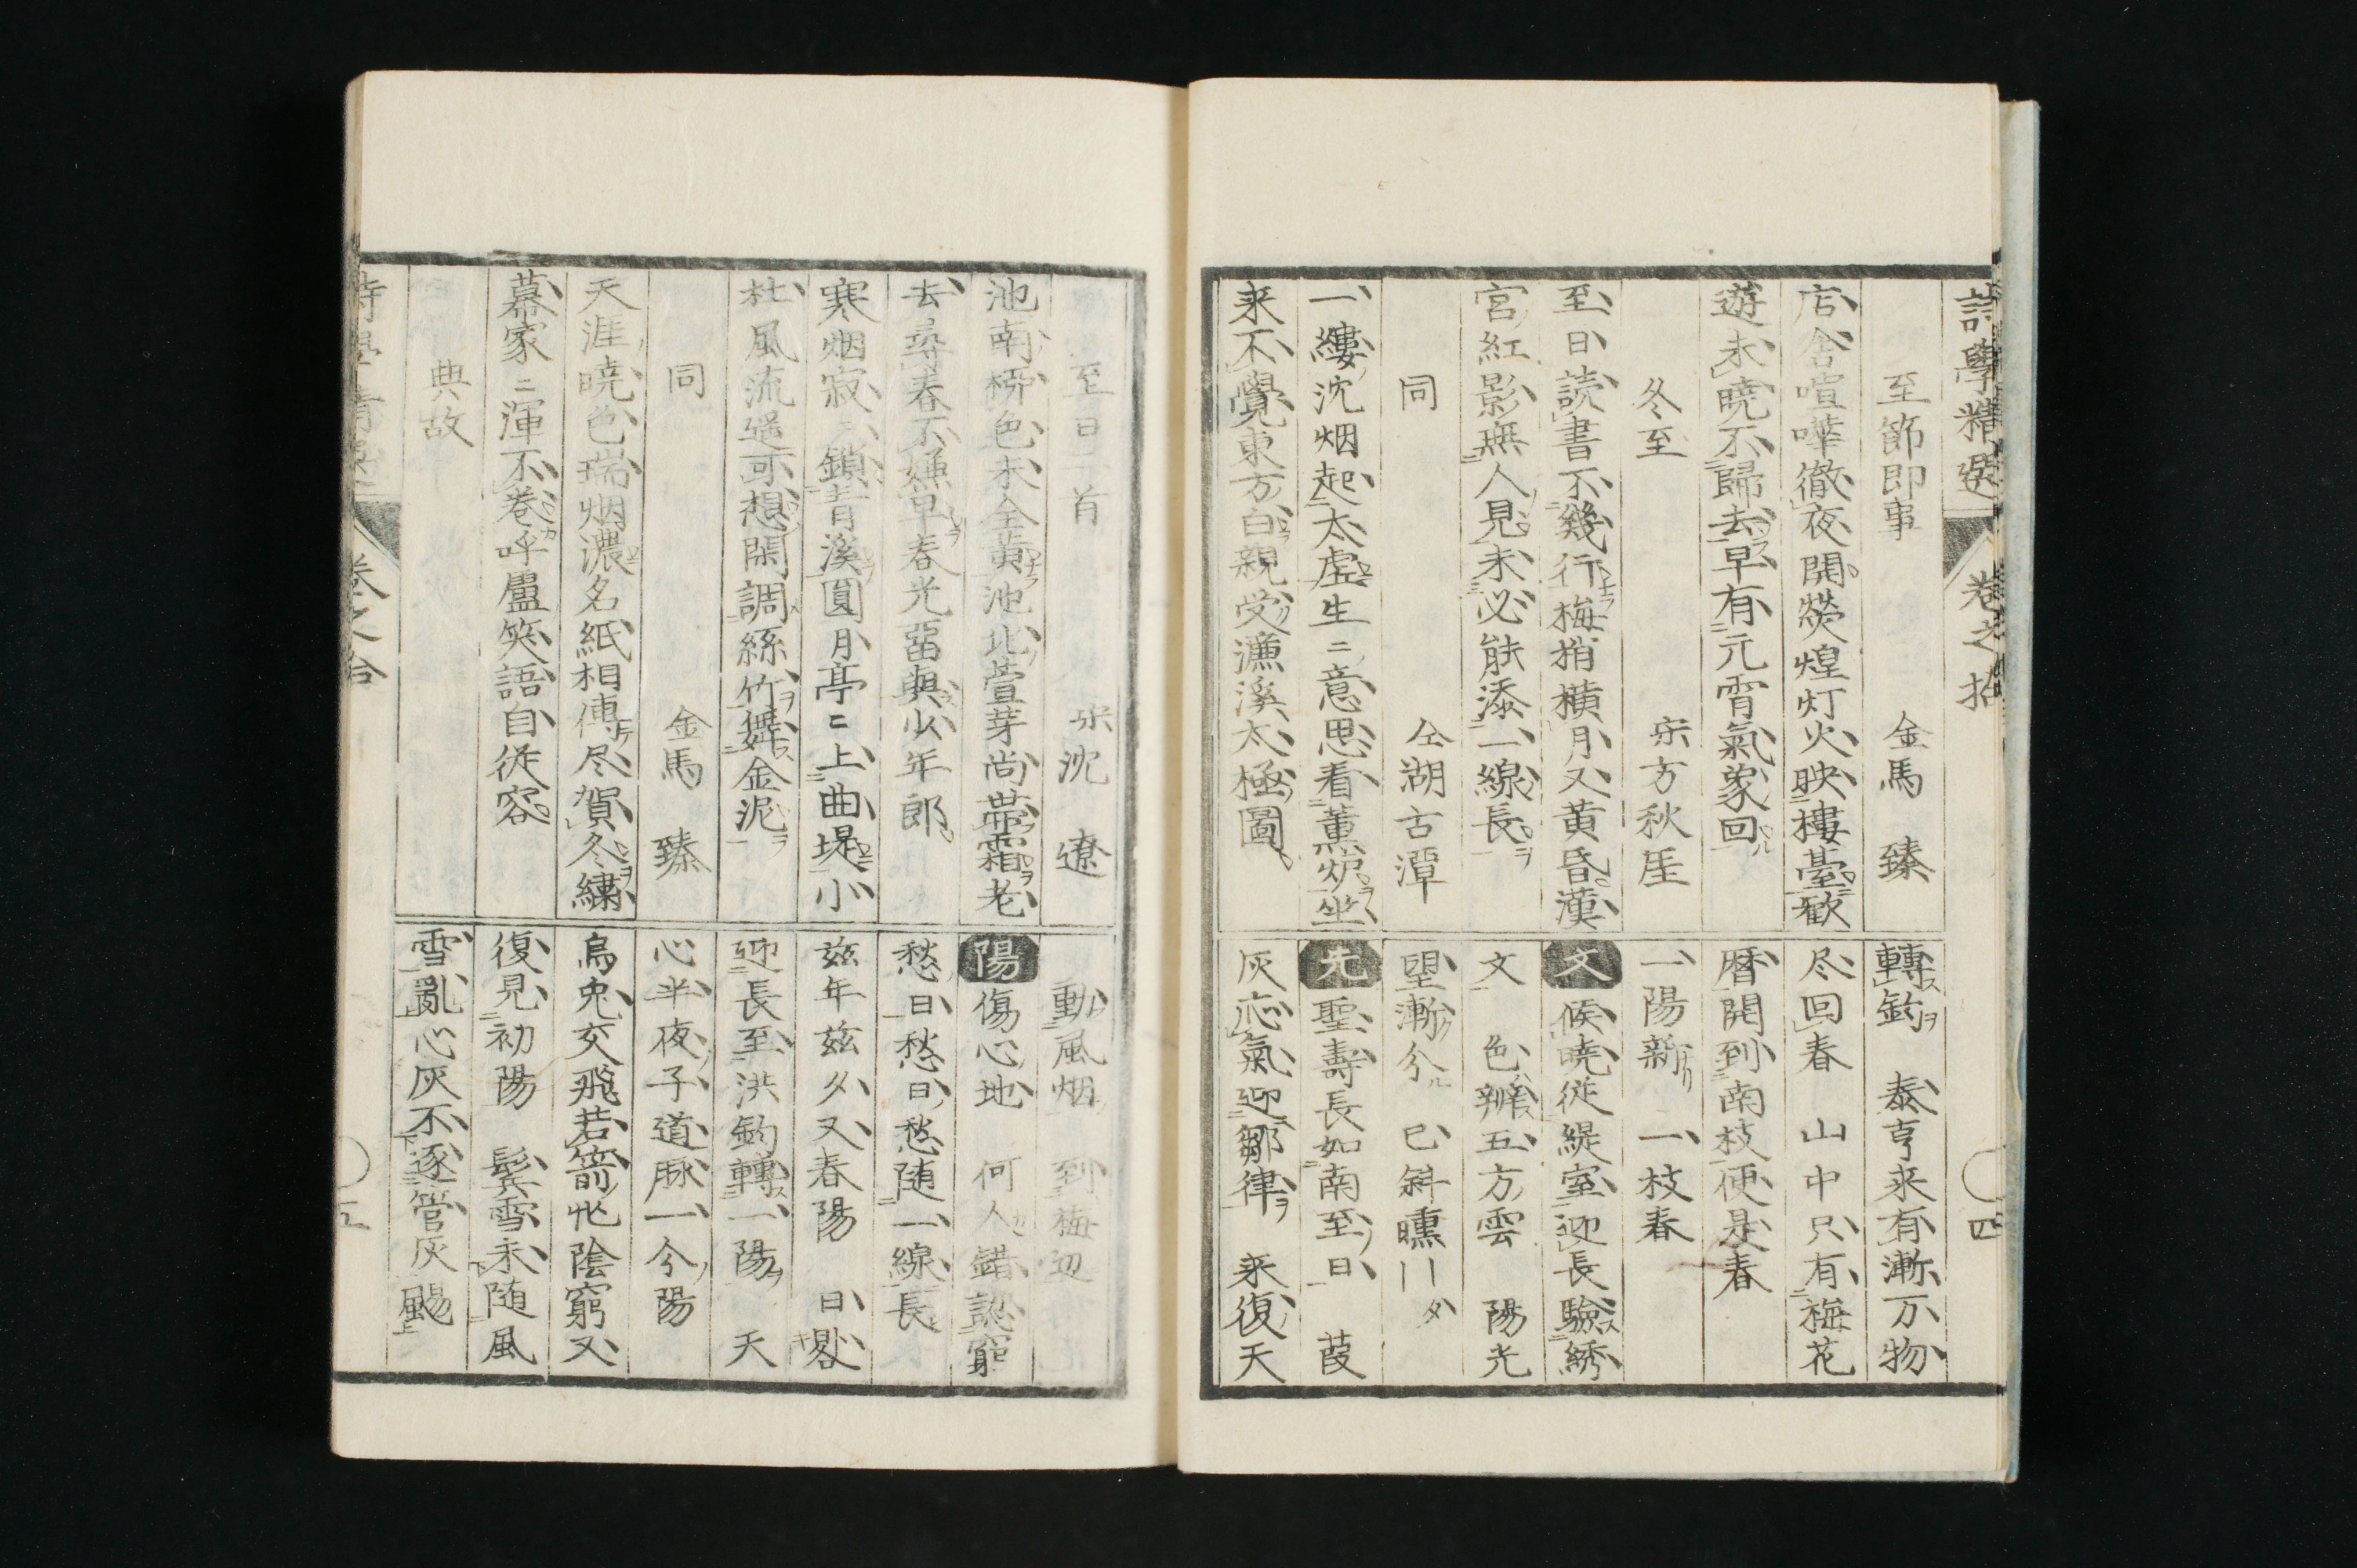 詩學精選 卷之拾 四
至節即事 金馬 臻
店舎喧嘩徹夜開熒煌灯火映樓臺歓
遊未暁不歸去早有元宵氣象回
冬至 宋方秋厓
至日読書不幾行梅梢横月又黄昏漢
宮紅影無人見未必能添一線長
同 仝湖古潭
一縷沈烟起太虚生ニ意思看薫炉坐
来不覺東方白親受濂溪太極圖
轉鈞ヲ 泰亨来有漸万物
尽回春 山中只有梅花
暦開到南枝便是春
一陽新 一枝春
文 候暁従緹室迎長驗綉
文 色辧五方雲 陽光
望漸分 已斜曛〢夕
元 聖壽長如南至日 葭
灰応氣迎鄒律ヲ 来復天
至日二首 宋沈 遼
池南栁色未全黄池北萱芽尚帯霜老
去尋春不嫌早春光畱與少年郎
寒烟寂ニ鎖青溪圓月亭ニ上曲堤小
杜風流遥可想閑調絲竹舞金泥
同 金馬 臻
天涯暁色瑞烟濃名紙相傳尽賀冬繍
幕家ニ渾不巻呼盧笑語自従容
典故
動風烟 到梅辺
陽 傷心地 何人錯認窮
愁日愁日愁随一線長
茲年茲夕又春陽 日晷
迎長至洪鈞轉一陽 天
心半夜子道脉一分陽
烏兎交飛若箭忙陰窮又
復見初陽 鬓雪未随風
雪亂心灰不逐管灰颺
五